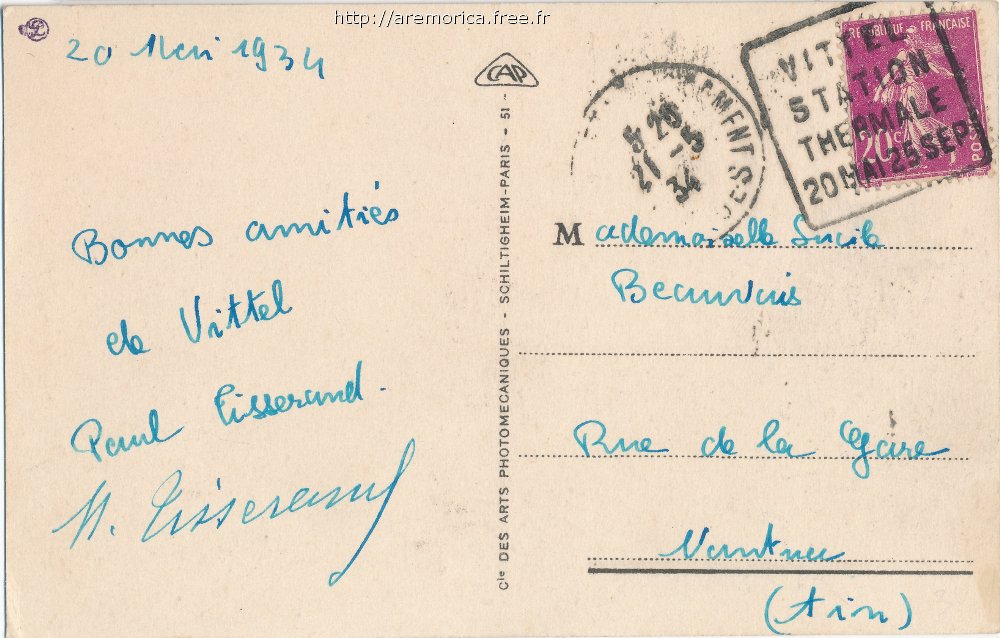 http://aremorica.free.fr
20 Mai 1934
Bonnes amitiés
de Vittel
Paul Tisserand.
M. Tisserand
Cie DES ARTS PHOTOMECANIQUES - SCHILTIGHEIM-PARIS - 51 -
CAP
5 20
21 - 5
34
VITTEL
STATION
THERMALE
20 MAI 25 SEP
REPUBLIQUE FRANÇAISE
20c
POSTES
Mademoiselle Lucile
Beauvais
Rue de la Gare
Nantua
(Ain)